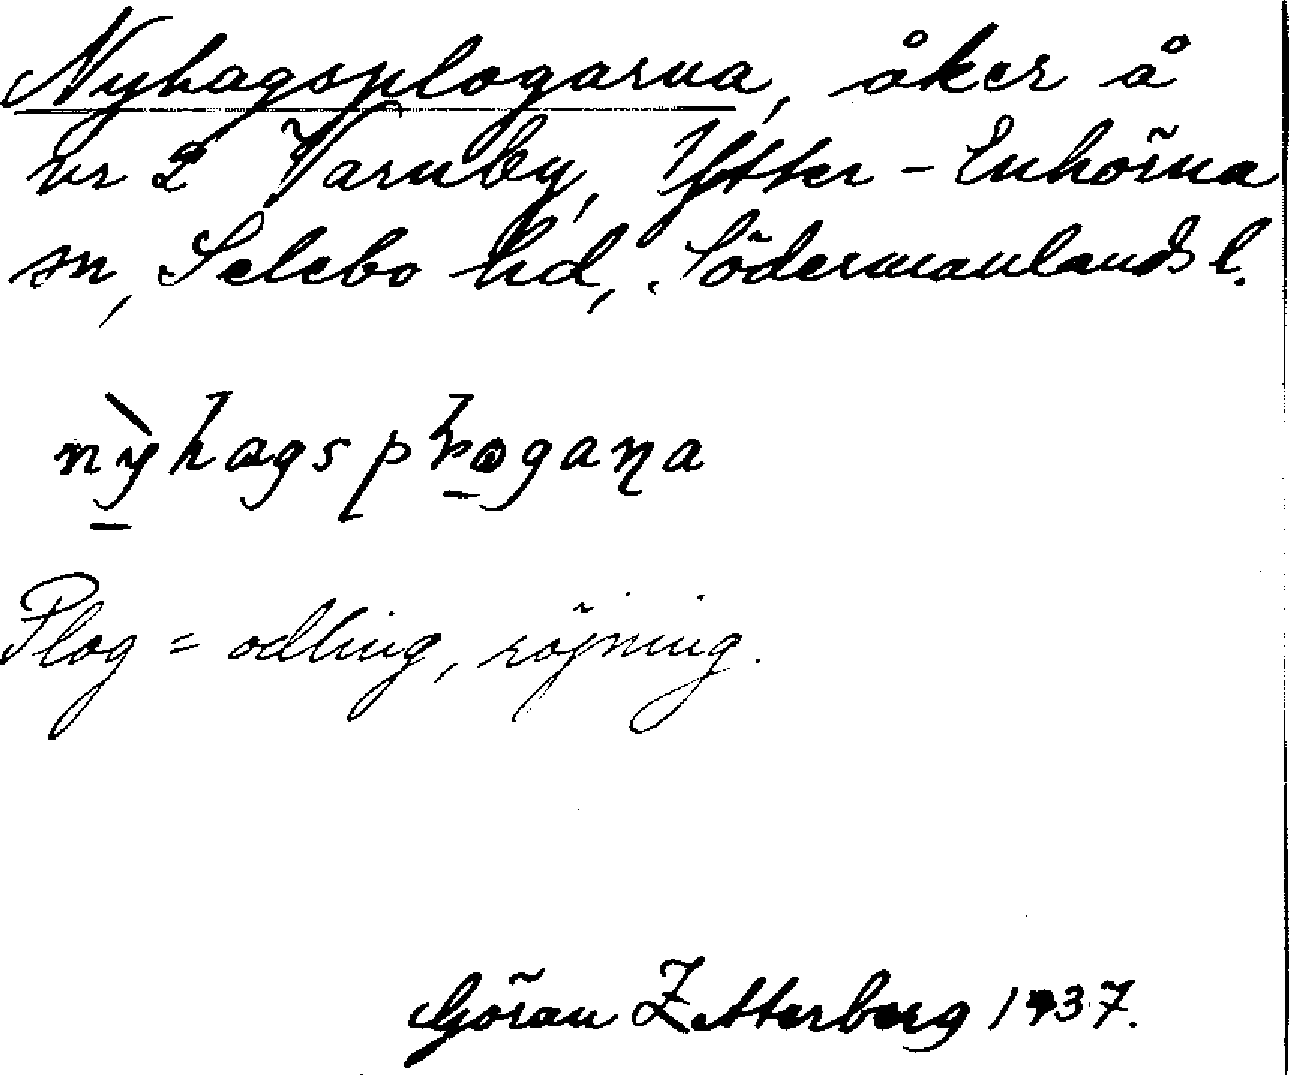 Nyhagsplogarna, åker å
nr 2 Varnby, Ytter-Enhörna
sn, Selebo hd, Södermanlands l.
nỳhagsplogaṇa
Plog = odling, röjning.
Göran Zetterberg 1937.